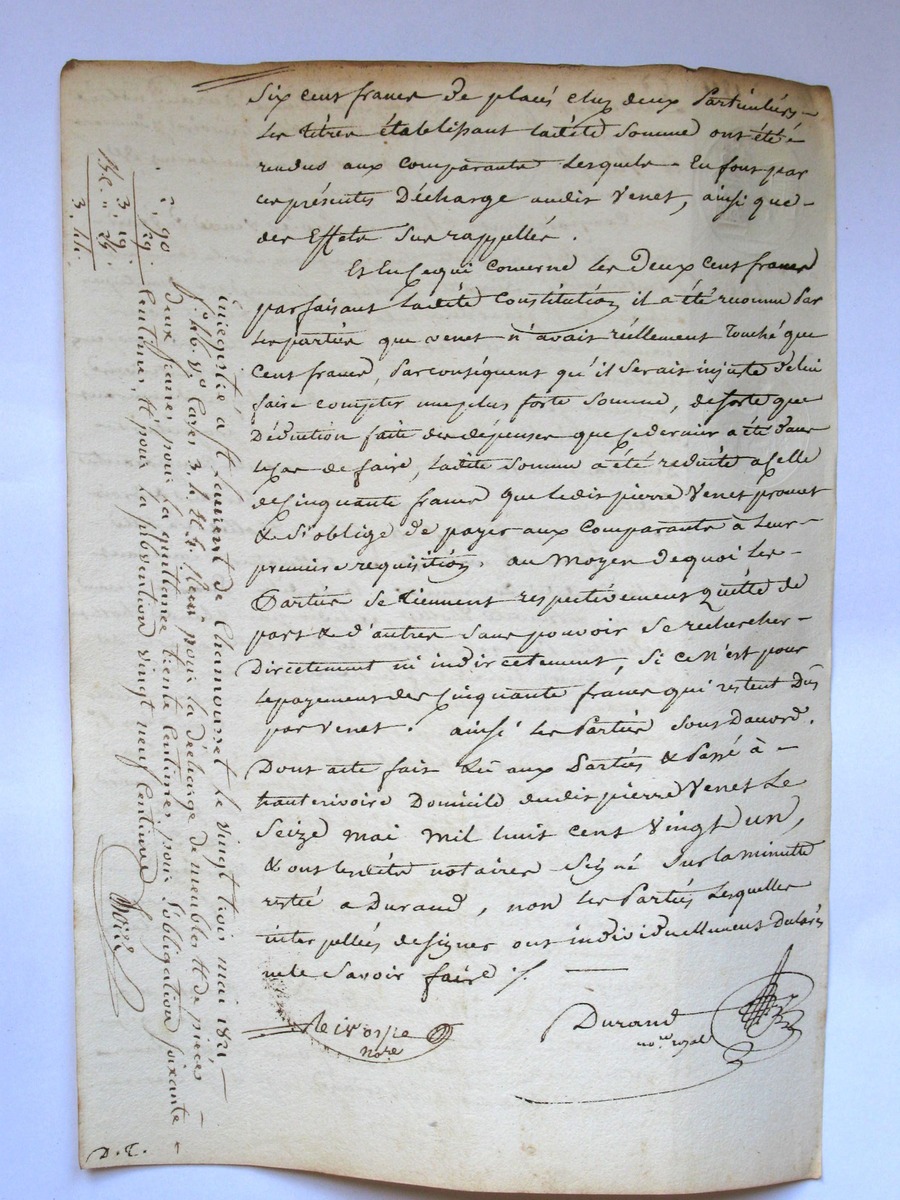 Six cent francs de placés chez deux Particuliers
Les titres établissant ladite Somme ont été
rendus aux comparants Lesquels En font par
ces présentes Décharge audit Venet, ainsi que
des Effets Surrappellés.
Et En Ce qui concerne les Deux cent francs
parfaisant Ladite Constitution il a été reconnu Par
Les parties que venet n'avait réellement Touché que
Cent francs, Par conséquent qu'il Serait injuste de lui
faire compter une plus forte Somme, de sorte que
Déduction faite des dépenses que Ce dernier a été dans
le cas de faire, Ladite Somme a été réduite a Celle
de Cinquante francs que ledit pierre Venet promet
& S'oblige de payer aux Comparants à Leur
premiere requisition. au Moyen de quoi Les
Parties Se tiennent respectivement Quitte de
part & d'autres Sans pouvoir Se rechercher
Directement ni indirectement, Si ce N'est pour
le payement des Cinquante francs qui restent Dûs
par Venet. ainsi Les Parties Sont D'accord.
Dont acte fait Lû aux Parties & Passé à
hauterivoire Domicile dudit pierre Venet Le
Seize mai mil huit cent Vingt un,
& ont lesdits notaires Signé Sur la minutte
restée a Durand, non les Parties Lesquelles
interpellées de Signer ont individuellement Déclaré
ne le Savoir faire ./.
nore
Durand
nore royal
Enregistré à St Laurent de Chamousset le vingt trois mai 1821
fo 46 Vo Cases 3, 4 Et 5. Reçu pour la décharge de meubles Et de pièces
deux francs, pour la quittance trente Centimes, pour L'obligation soixante
Centimes, Et pour la subvention vingt neuf Centimes
D. T.